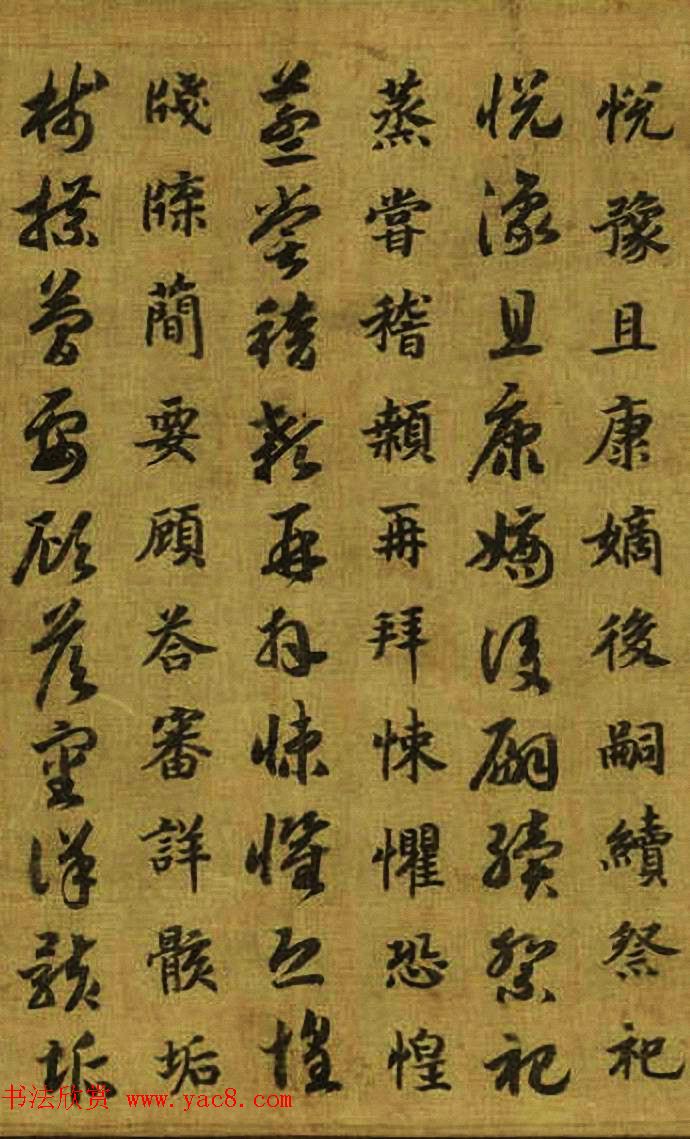 悦豫且康嫡後嗣續祭祀
悦豫且康嫡後嗣續祭祀
蒸嘗稽顙再拜悚懼恐惶
蒸嘗稽顙再拜悚懼恐惶
牋牒簡要顧荅審詳骸垢
牋牒簡要顧荅審詳骸垢
书法欣赏 www.yac8.com